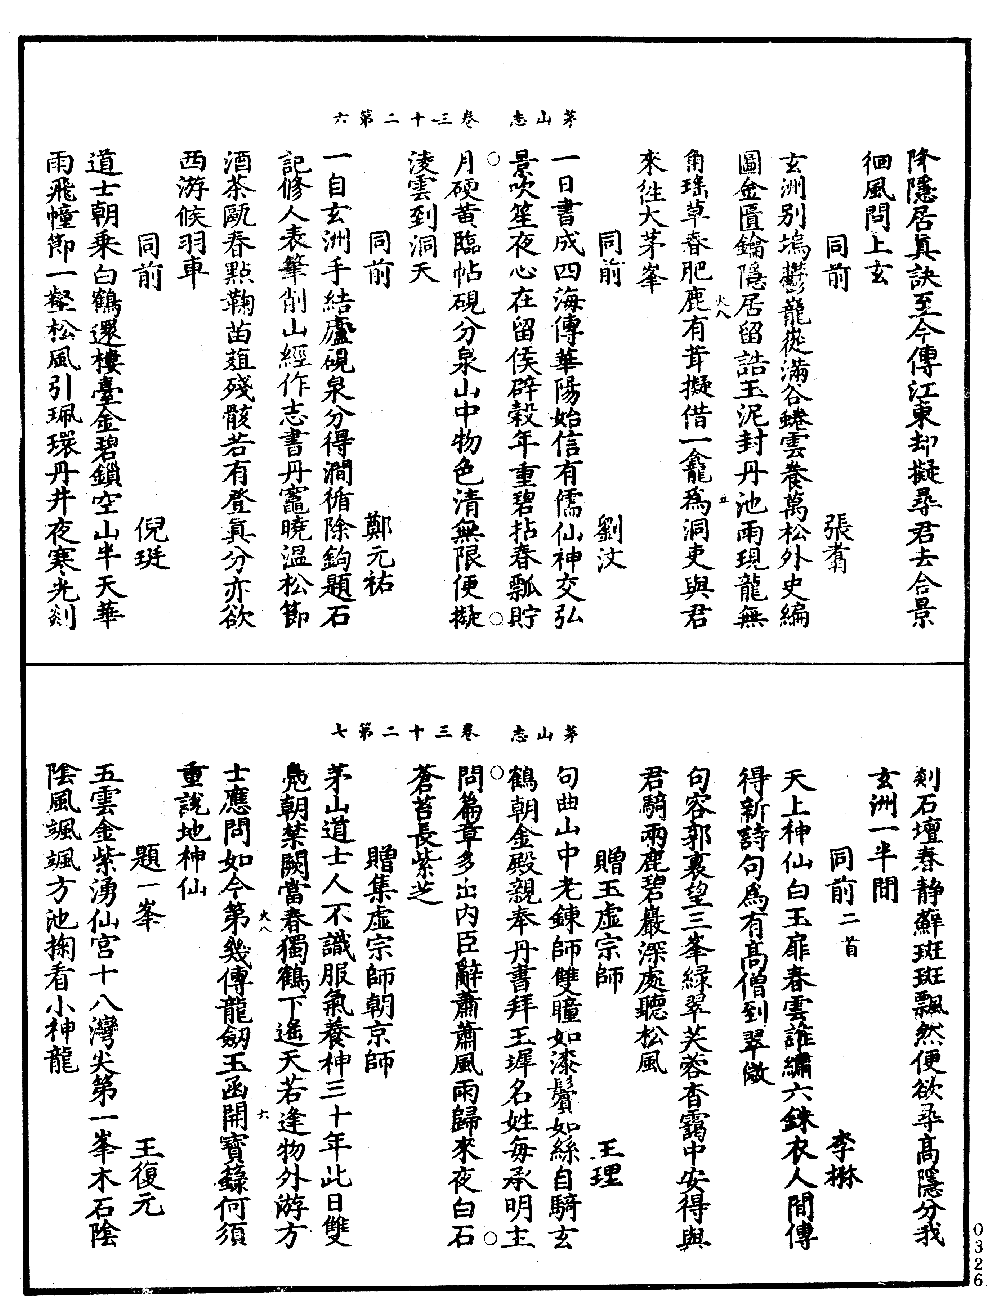 茅山志　卷三十二第六
降隱居真訣至今傳江東却擬尋君去合景
徊風問上玄
同前　張翥
玄洲別塢鬱蘢葱滿谷蜷雲養萬松外史編
圖金匱鑰隱居留誥玉泥封丹池雨現龍無
角瑤草春肥鹿有茸擬借一龕爲洞吏與君
來往大茅峯
同前　劉汶
一日書成四海傳華陽始信有儒仙神交弘
景吹笙夜心在留侯辟榖年重碧拈春瓢貯
月硬黃臨帖硯分泉山中物色清無限便擬
淩雲到洞天
同前　鄭元祐
一自玄洲手結廬硯泉分得澗循除鈎題石
記修人表筆削山經作志書丹竈曉溫松節
酒茶甌春點鞠苗葅殘骸若有登真分亦欲
西游候羽車
同前　倪珽
道士朝乘白鶴還樓臺金碧鎖空山半天華
雨飛幢節一壑松風引珮環丹井夜寒光剡
火八
五
茅山志　卷三十二第七
剡石壇春静蘚斑斑飄然便欲尋高隱分我
玄洲一半閒
同前二首　李楙
天上神仙白玉扉春雲誰繡六銖衣人間傳
得新詩句爲有高僧到翠微
句容郭裏望三峯綠翠芙蓉杳靄中安得與
君騎兩鹿碧巖深處聽松風
贈玉虛宗師　王理
句曲山中老鍊師雙瞳如漆鬢如絲自騎玄
鶴朝金殿親奉丹書拜玉墀名姓每承明主
問篇章多出内臣辭蕭蕭風雨歸來夜白石
蒼苔長紫芝
贈集虛宗師朝京師
茅山道士人不識服氣養神三十年此日雙
鳬朝禁闕當春獨鶴下遙天若逢物外游方
士應問如今第幾傳龍劒玉函開寶籙何須
重說地神仙
題一峯　王復元
五雲金紫湧仙宮十八灣尖第一峯木石陰
陰風颯颯方池掬看小神龍
火八
六
0326